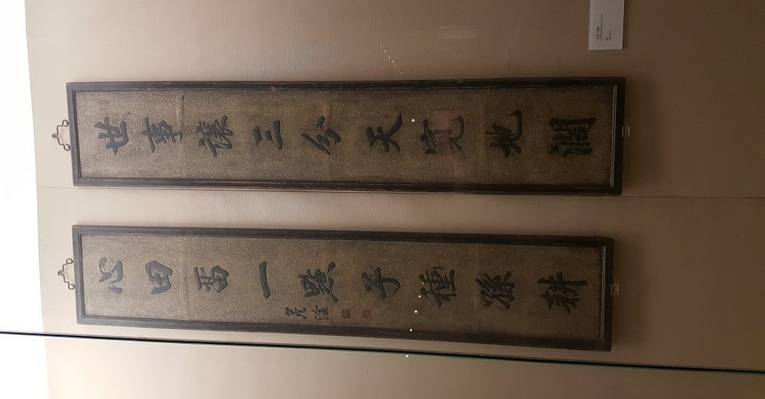 世事讓三分天寬地闊
心田留一點子種孫耕